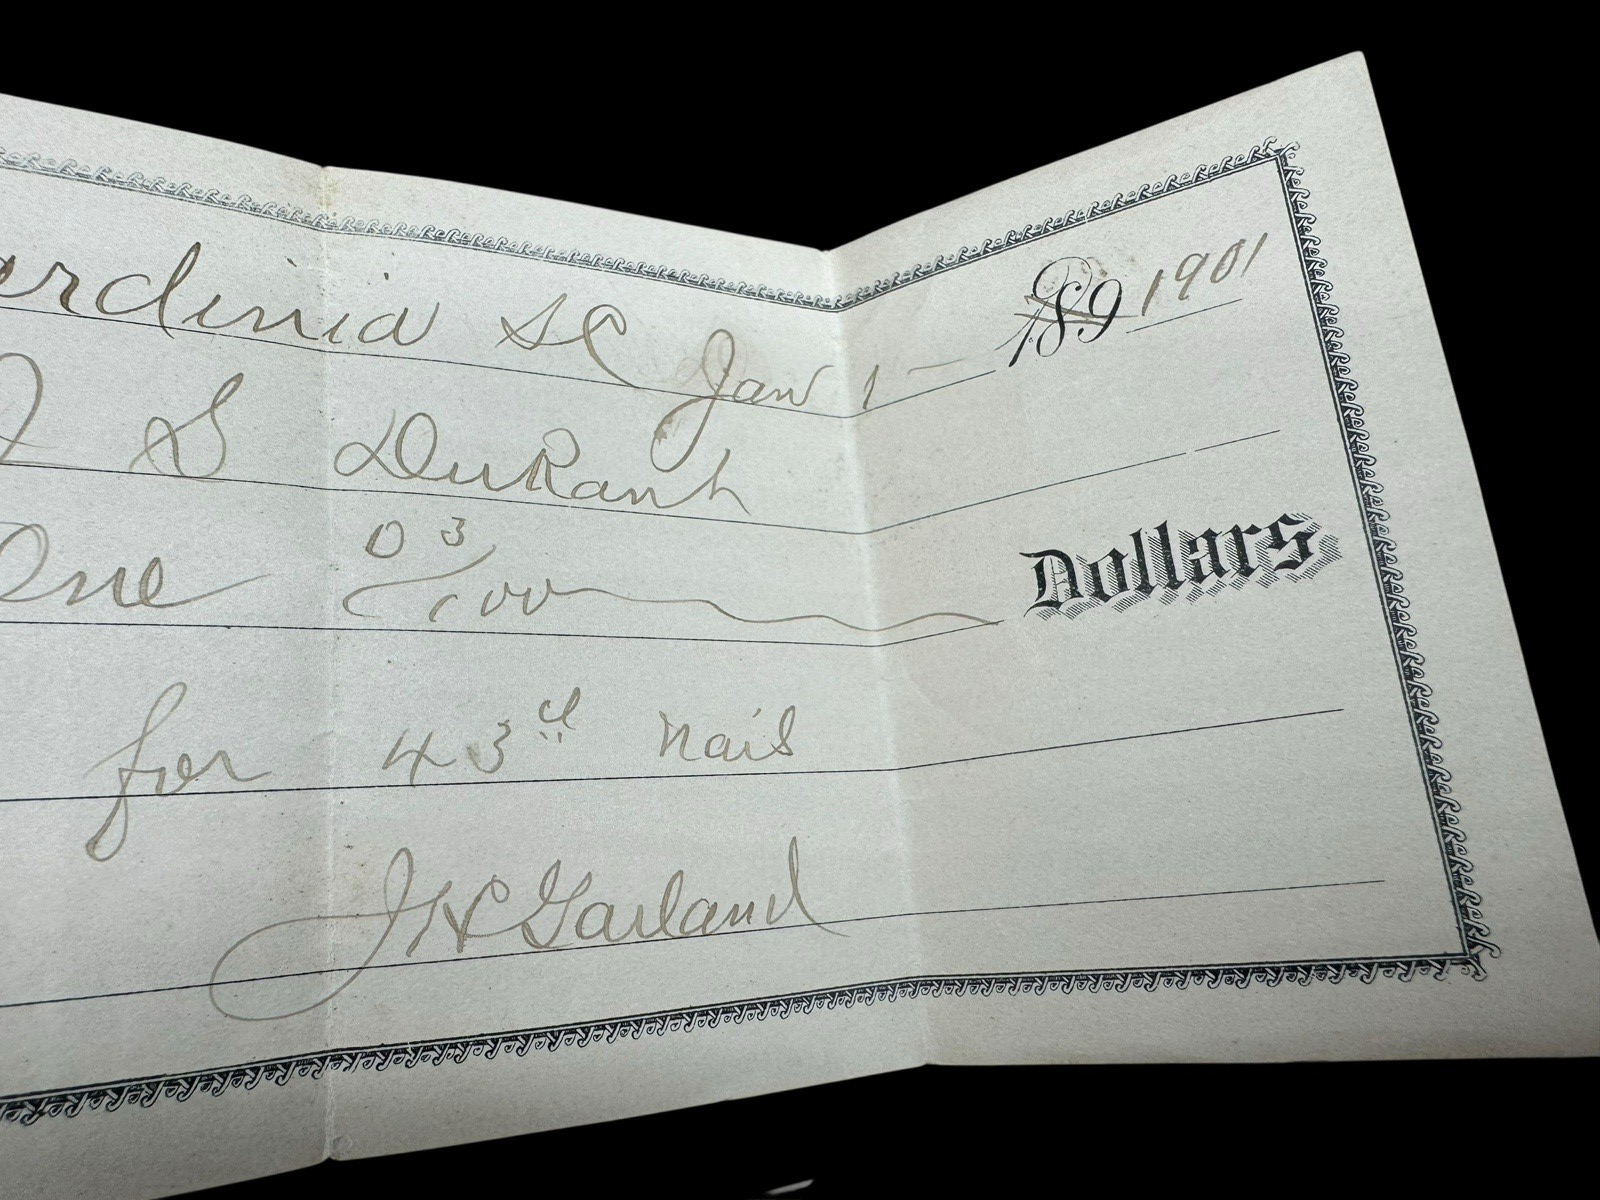 ardinia SC Jan 1 — 189 1901
J S DuRant
One 03/100 Dollars
for 43 nails
J H Garland